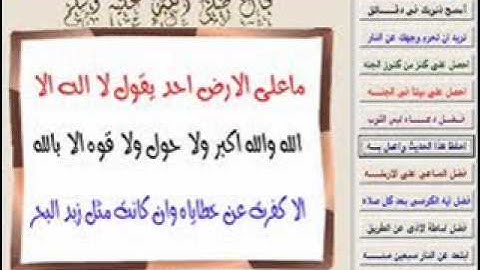 قال صلى الله عليه وسلم
ما على الارض احد يقول لا اله الا
الله والله اكبر ولا حول ولا قوه الا بالله
الا كفرة عن خطاياه وان كانة مثل زبد البحر
أمسح ذنوبك في دقائق
تريد ان تحرم وجهك عن النار
احصل على كنز من كنوز الجنه
احصل على بيتا في الجنه
فضل دعاء لبس الثوب
احفظ هذا الحديث واعمل به
فضل الساعي على الارمله
فضل ايه الكرسي بعد كل صلاه
فضل اماطة الاذى عن الطريق
ابتعد عن النار سبعين سنه